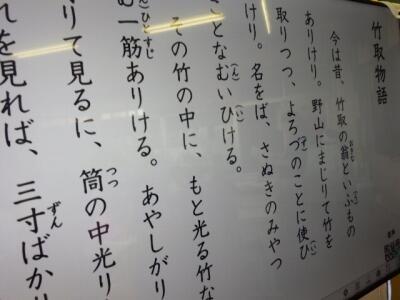 竹取物語
今は昔、竹取の翁といふもの
ありけり。野山にまじりて竹を
取りつつ、よろづのことに使ひ
けり。名をば、さぬきのみやつ
ことなむいひける。
その竹の中に、もと光る竹な
む一筋ありける。あやしがり
りて見るに、筒の中光り
れを見れば、三寸ばか